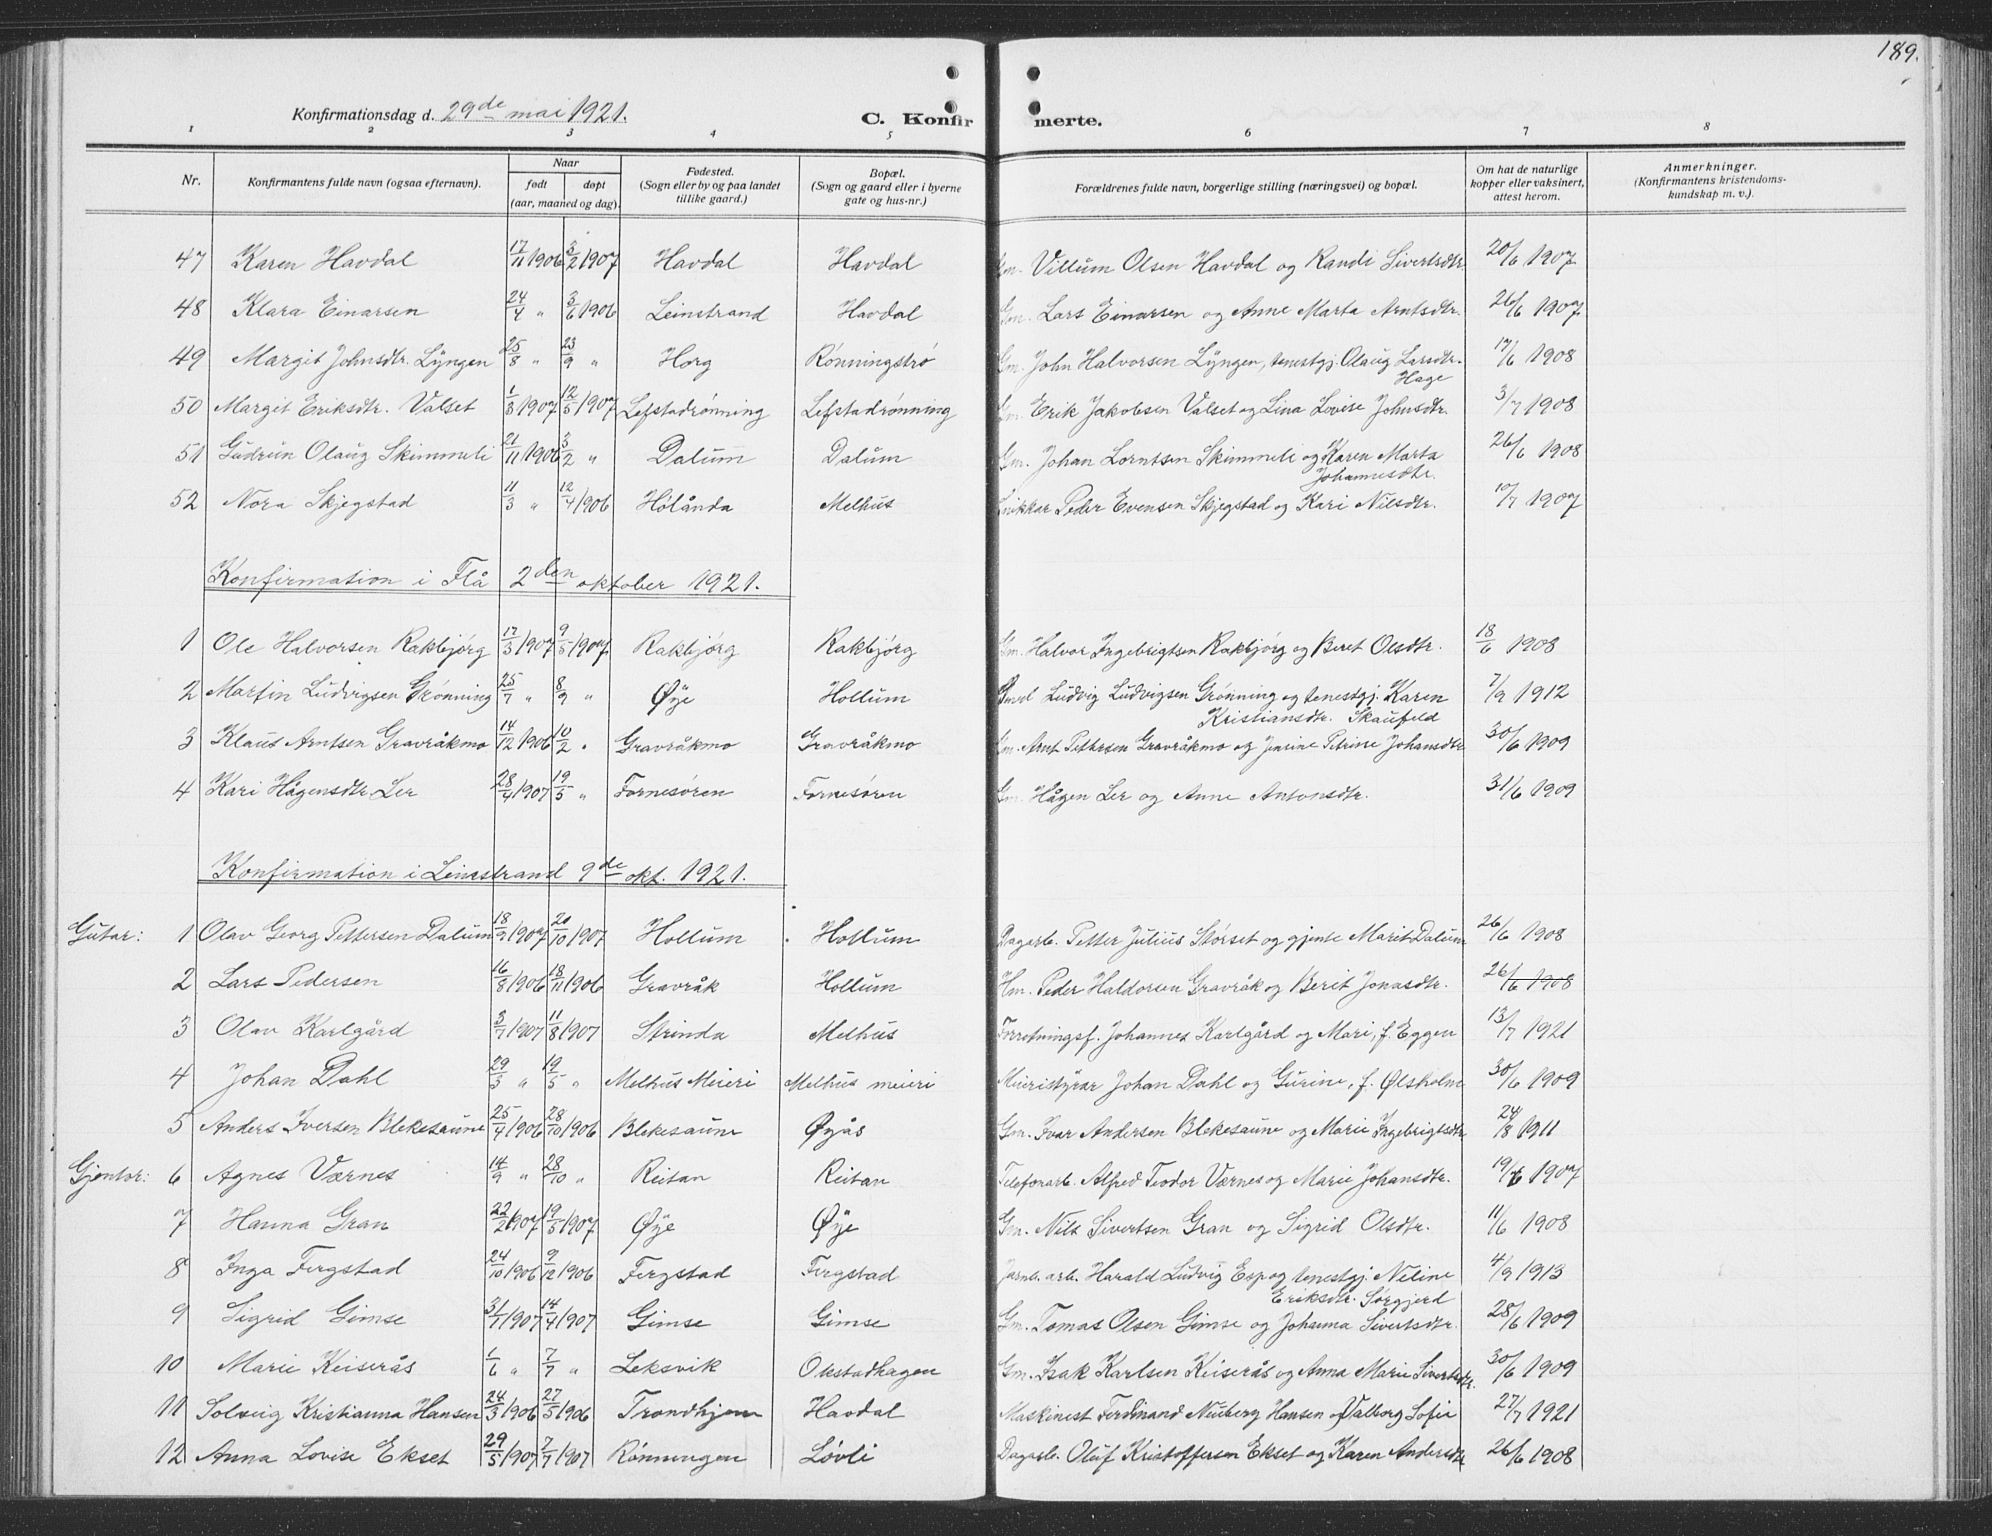 189.
Konfirmationsdag d. 29de mai 1921. C. Konfirmerte.
1 2 3 4 5 6 7 8
Nr. Konfirmantens fulde navn (ogsaa efternavn). Naar født døpt (aar, maaned og dag). Fødested. (Sogn eller by og paa landet tillike gaard.) Bopæl. (Sogn og gaard eller i byerne gate og hus-nr.) Forældrenes fulde navn, borgerlige stilling (næringsvei) og bopæl. Om hat de naturlige kopper eller vaksinert, attest herom. Anmerkninger. (Konfirmantens kristendomskundskap m. v.).
47 Karen Havdal 17/11 1906 3/2 1907 Havdal Havdal Gm. Villum Olsen Havdal og Randi Sivertsdtr. 20/6 1907
48 Klara Einarsen 24/4 " 3/6 1906 Leinstrand Havdal Gm. Lars Einarsen og Anne Marta Arntsdtr. 26/6 1907
49 Margit Johnsdtr. Lyngen 25/8 " 23/9 " Horg Rønningstrø Gm. John Halvorsen Lyngen, tenestgj. Olaug Larsdtr. Hage 17/6 1908
50 Margit Eriksdtr. Valset 1/3 1907 12/5 1907 Lefstadrønning Lefstadrønning Gm. Erik Jakobsen Valset og Lina Lovise Johnsdtr. 3/7 1908
51 Gudrun Olaug Skimmeli 21/11 1906 3/2 " Dalum Dalum Gm. Johan Lorntsen Skimmeli og Karen Marta Johannesdtr. 26/6 1908
52 Nora Skjegstad 11/3 " 12/4 1906 Hølånda Melhus Peder Evensen Skjegstad og Kari Nilsdtr. 10/7 1907
Konfirmation i Flå 2den oktober 1921.
1 Ole Halvorsen Rakbjørg 17/3 1907 9/5 1907 Rakbjørg Rakbjørg Gm. Halvor Ingebrigtsen Rakbjørg og Beret Olsdtr. 18/6 1908
2 Martin Ludvigsen Grønning 25/7 " 8/9 " Øye Hollum Ludvig Ludvigsen Grønning og tenestgj. Karen Kristiansdtr. Skaufeld 7/9 1912
3 Klaus Arntsen Gravråkmo 14/12 1906 10/2 " Gravråkmo Gravråkmo Gm. Arnt Pettersen Gravråkmo og Jensine Petrine Johansdtr 30/6 1909
4 Kari Hågensdtr. Ler 28/4 1907 19/5 " Fornesøren Fornesøren Gm. Hågen Ler og Anne Antonsdtr. 31/6 1909
Konfirmation i Leinstrand 9de okt. 1921.
Gutar: 1 Olav Georg Pettersen Dalum 18/9 1907 20/10 1907 Hollum Hollum Dagarb. Petter Julius Størset og gjente Marit Dalum 26/6 1908
2 Lars Pedersen 16/8 1906 18/11 1906 Gravråk Hollum Hm. Peder Haldorsen Gravråk og Berit Jonasdtr. 26/6 1908
3 Olav Karlgård 3/7 1907 11/8 1907 Strinda Melhus Forretningsf. Johannes Karlgård og Mari, f. Eggen 13/7 1921
4 Johan Dahl 29/3 " 19/5 " Melhus Meieri Melhus meieri Meieristyrar Johan Dahl og Gurine, f. Ølsholm 30/6 1909
5 Anders Iversen Blekesaune 25/4 1906 28/10 1906 Blekesaune Øyås Gm. Ivar Andersen Blekesaune og Marie Ingebrigtsdtr 24/8 1911
Gjentor: 6 Agnes Værnes 14/9 " 28/10 " Reitan Reitan Telefonarb. Alfred Teodor Værnes og Marie Johansdtr. 19/6 1907
7 Hanna Gran 22/2 1907 19/5 1907 Øye Øye Gm. Nils Sivertsen Gran og Sigrid Olsdtr. 11/6 1908
8 Inga Fergstad 24/10 1906 9/12 1906 Fergstad Fergstad Jarnb. arb. Harald Ludvig Esp og tenestgj. Neline Eriksdtr. Sørgjerd 4/9 1913
9 Sigrid Gimse 31/1 1907 14/4 1907 Gimse Gimse Gm. Tomas Olsen Gimse og Johanna Sivertsdtr. 28/6 1909
10 Marie Keiserås 1/6 " 7/7 " Leksvik Okstadhagen Gm. Isak Karlsen Keiserås og Anna Marie Sivertsdtr. 30/6 1909
11 Solveig Kristianna Hansen 24/3 1906 27/5 1906 Trondhjem Havdal Maskinest Ferdinand Neuberg Hansen og Valborg Sofie 27/7 1921
12 Anna Lovise Ekset 29/5 1907 7/7 1907 Rønningen Løvli Dagarb. Oluf Kristoffersen Ekset og Karen Andersdtr 26/6 1908